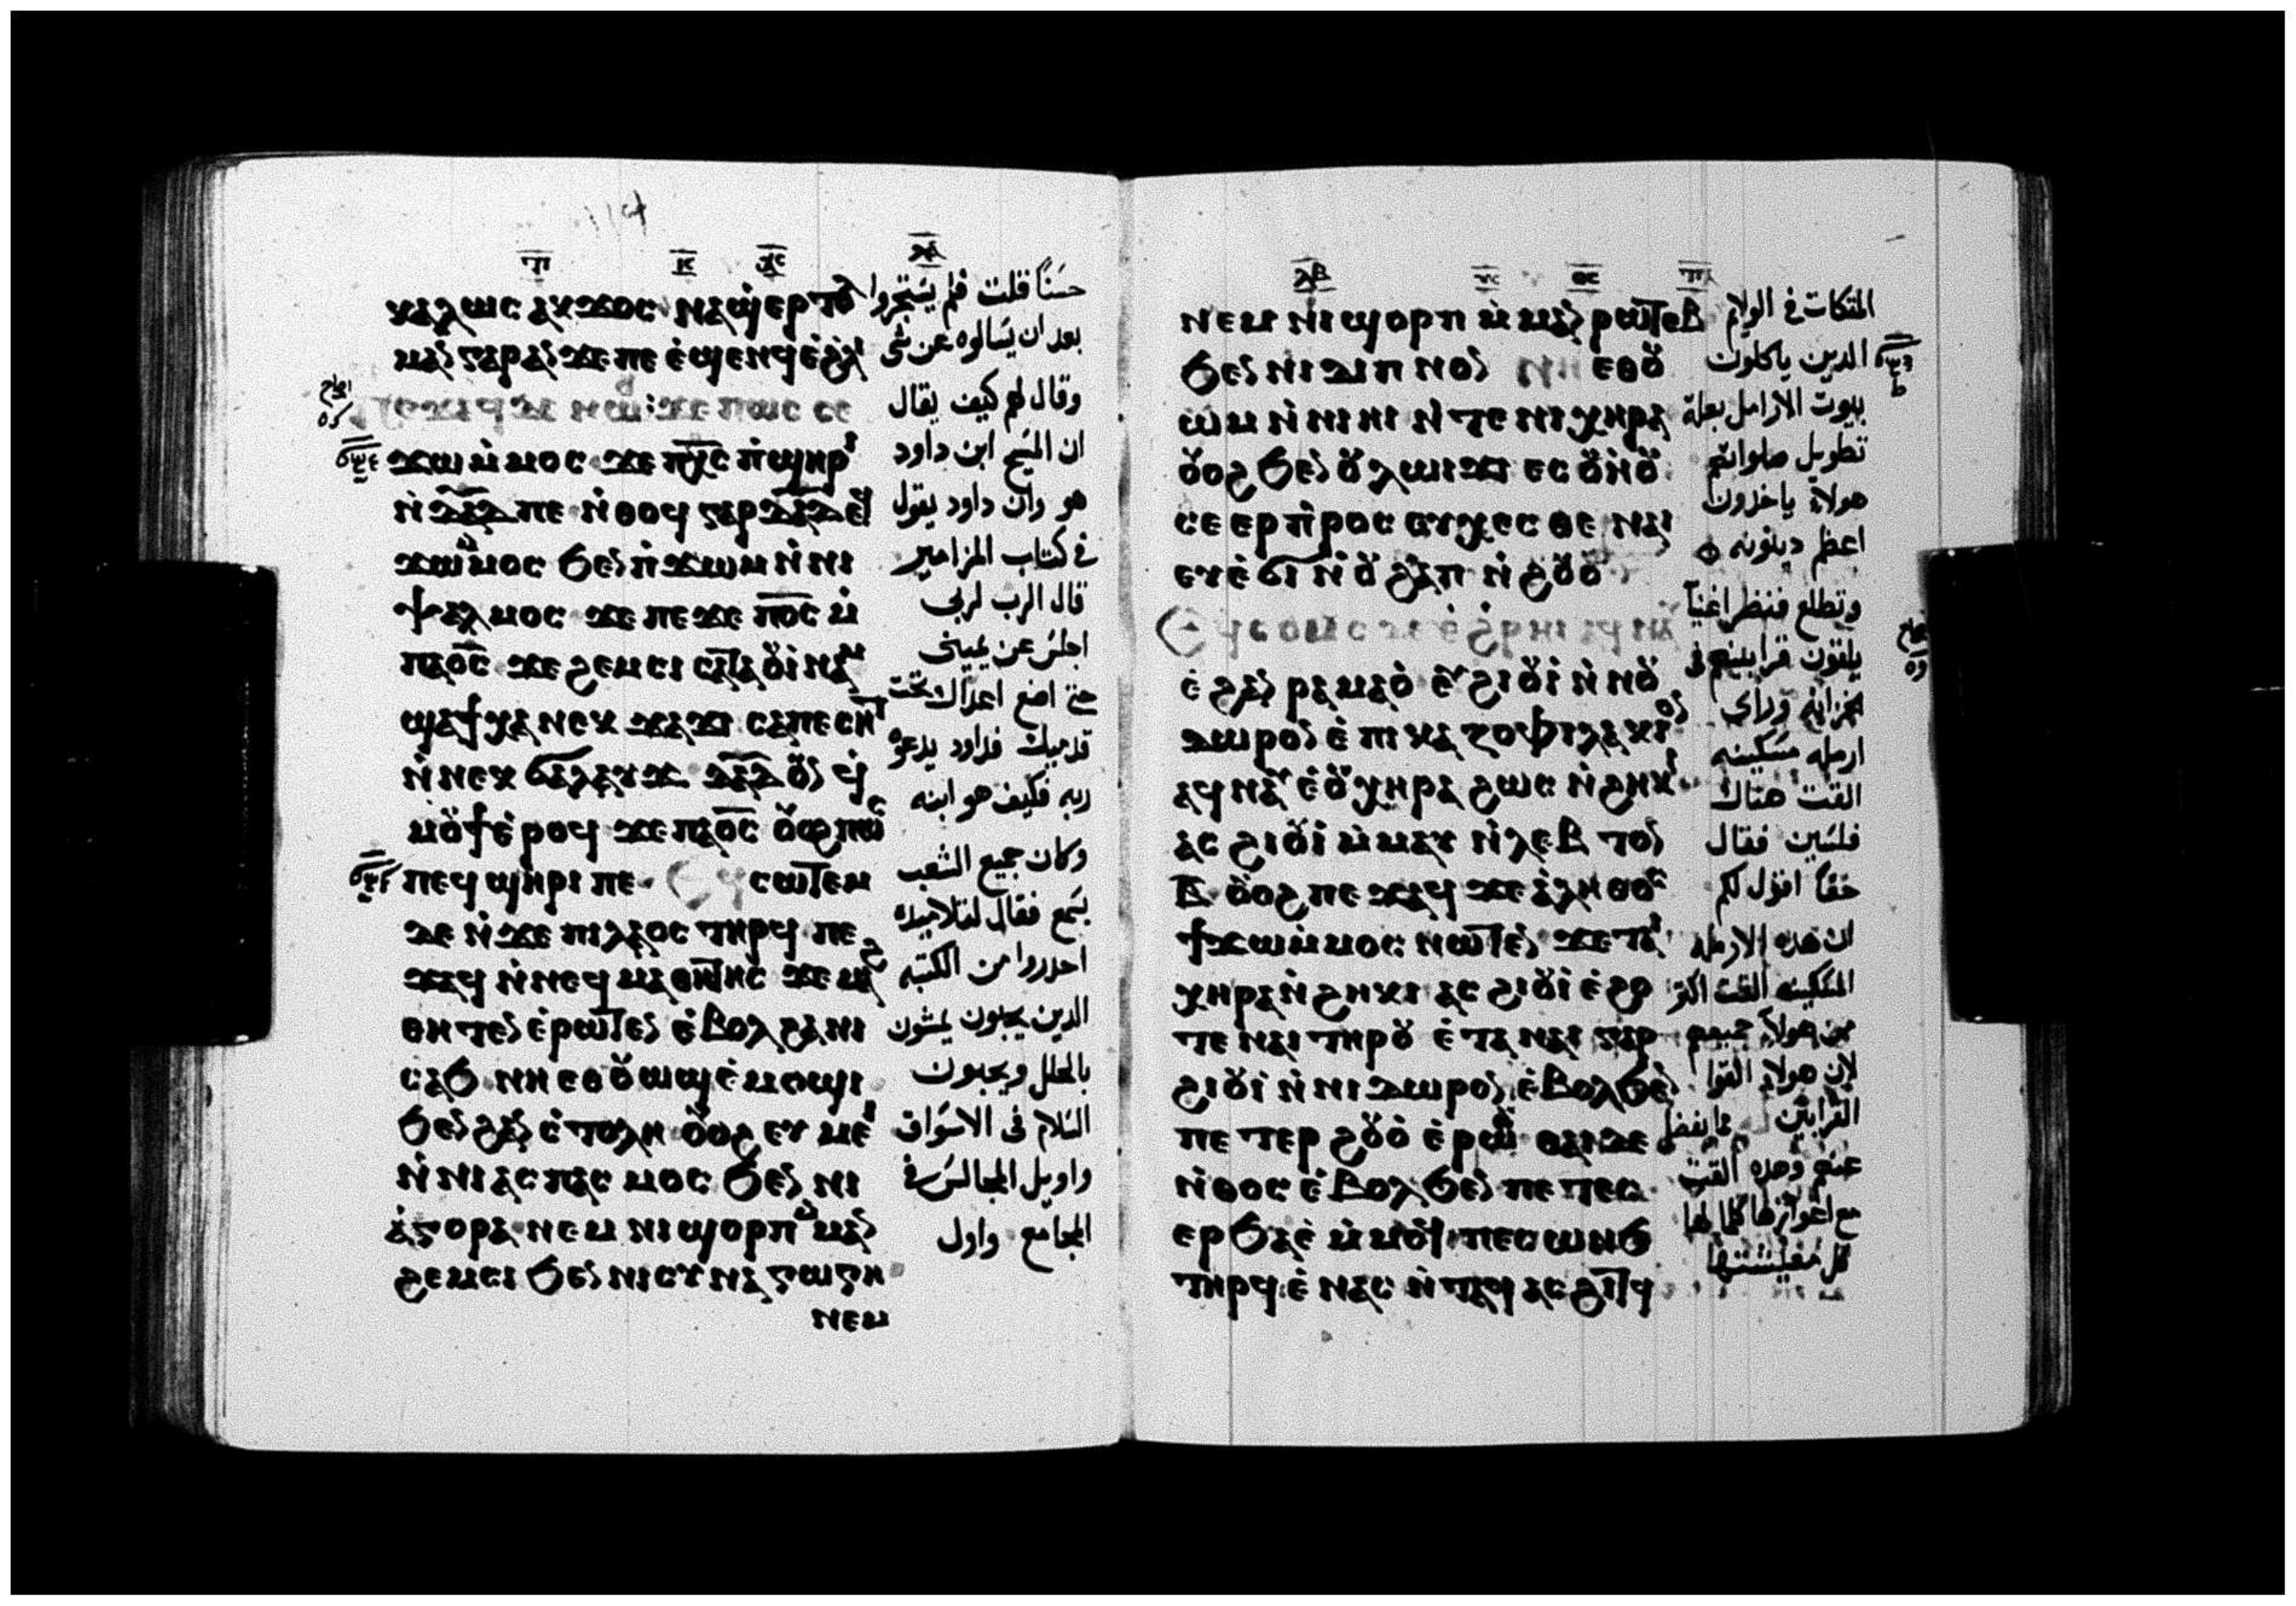 ⲕⲁⲗⲱⲥ ⲁⲕϫⲟⲥ ⲛⲁϣⲉⲣⲧⲟ
ⲙⲁⲛ ⲅⲁⲣ ⲁⲛ ϫⲉ ⲡⲉ ⲉ̀ϣⲉⲛϥ ⲉ̀ϩ̀ⲗ
ϫⲱ ⲙ̀ⲙⲟⲥ ϫⲉ ⲡⲭ̅ⲥ̅ ⲡ̀ϣⲏⲣⲓ
ⲛ̀ⲇ̅ⲁ̅ⲇ̅ ⲡⲉ ⲛ̀ⲑⲟϥ ⲅⲁⲣ ⲇ̅ⲁ̅ⲇ̅ ⲉϥ
ϫⲱ ⲙ̀ⲙⲟⲥ ϧⲉⲛ ⲡ̀ϫⲱⲙ ⲛ̀ⲛⲓ
ⲯⲁⲗⲙⲟⲥ ϫⲉ ⲡⲉϫⲉ ⲡⲟ̅ⲥ̅ ⲙ̀
ⲡⲁⲟ̅ⲥ̅ ϫⲉ ϩⲉⲙⲥⲓ ⲥⲁⲧⲁⲟⲩⲓ̀ⲛⲁⲙ
ϣⲁϯⲭⲁ ⲛⲉⲕϫⲁϫⲓ ⲥⲁⲡⲉⲥⲏⲧ
ⲛ̀ⲛⲉⲕϭⲁⲗⲁⲩϫ ⲇ̅ⲁ̅ⲇ̅ ⲟⲩⲛ ϥ̀
ⲙⲟⲩϯ ⲉ̀ⲣⲟϥ ϫⲉ ⲡⲁⲟ̅ⲥ̅ ⲟⲩⲟϩ ⲡⲱⲥ
ⲡⲉϥϣⲏⲣⲓ ⲡⲉ ⲉϥⲥⲱⲧⲉⲙ
ⲇⲉ ⲛ̀ϫⲉ ⲡⲓⲗⲁⲟⲥ ⲧⲏⲣϥ ⲡⲉ
ϫⲁϥ ⲛ̀ⲛⲉϥⲙⲁⲑⲏⲧⲏⲥ ϫⲉ ⲙⲁϩ
ⲑⲏⲧⲉⲛ ⲉ̀ⲣⲱⲧⲉⲛ ⲉ̀ⲃⲟⲗ ϩⲁ ⲛⲓ
ⲥⲁϧ ⲛⲏ ⲉⲑⲟⲩⲱϣ ⲉ̀ⲙⲟϣⲓ
ϧⲉⲛ ϩⲁⲛ ⲥ̀ⲧⲟⲗⲏ ⲟⲩⲟϩ ⲉⲩⲙⲉⲓ
ⲛ̀ⲛⲓⲁⲥⲡⲁⲥⲙⲟⲥ ϧⲉⲛ ⲛⲓ
ⲁ̀ⲅⲟⲣⲁ ⲛⲉⲙ ⲛⲓϣⲟⲣⲡ ⲙ̀ⲙⲁⲛ
ϩⲉⲙⲥⲓ ϧⲉⲛ ⲛⲓⲥⲩⲛⲁⲅⲱⲅⲏ
ⲛⲉⲙ
حسناً قلت فلم يستجروا
بعد ان يسالوه عن شي
وقال لهم كيف يقال
ان المسيح ابن داود
هو وان داود يقول
في كتاب المزامير
قال الرب لربي
اجلس عن يميني
حتي اضع اعداك تحت
قدميك فداود يدعوه
ربه فكيف هو ابنه
وكان جميع الشعب
يسمع فقال لتلاميذه
احدروا من الكتبه
الدين يحبون يمشون
بالحلل ويحبون
السلام في الاسواق
واويل المجالس في
المجامع واول
ⲛⲉⲙ ⲛⲓϣⲟⲣⲡ ⲙ̀ⲙⲁⲛⲣⲱⲧⲉⲃ
ϧⲉⲛ ⲛⲓⲇⲓⲡⲛⲟⲛ ⲛⲏ ⲉⲑⲟⲩ
ⲱⲙ ⲛ̀ⲛⲓⲏⲓ ⲛ̀ⲧⲉ ⲛⲓⲭⲏⲣⲁ
ⲟⲩⲟϩ ϧⲉⲛ ⲟⲩⲗⲱⲓϫⲓ ⲉⲥⲟⲩⲏⲟⲩ
ⲥⲉⲉⲣⲡ̀ⲣⲟⲥⲉⲩⲭⲉⲥⲑⲉ ⲛⲁⲓ
ⲉⲩⲉ̀ϭⲓ ⲛ̀ⲟⲩϩⲁⲡ ⲛ̀ϩⲟⲩⲟ̀
ⲉ̀ϩⲁⲛⲣⲁⲙⲁⲟ̀ ⲉⲩϩⲓⲟⲩⲓ̀ ⲛ̀ⲛⲟⲩ
ⲇⲱⲣⲟⲛ ⲉ̀ⲡⲓⲅⲁⲍⲟⲫⲓⲗⲁⲕⲓⲟⲛ
ⲁϥⲛⲁⲩ ⲉ̀ⲟⲩⲭⲏⲣⲁ ϩⲱⲥ ⲛ̀ϩⲏⲕⲓ
ⲁⲥϩⲓⲟⲩⲓ̀ ⲙ̀ⲙⲁⲩ ⲛ̀ⲗⲉⲡⲧⲟⲛ
ⲃ̅ ⲟⲩⲟϩ ⲡⲉϫⲁϥ ϫⲉ ⲁ̀ⲗⲏⲑⲟⲥ
ϯϫⲱ ⲙ̀ⲙⲟⲥ ⲛⲱⲧⲉⲛ ϫⲉ ⲧⲁⲓ
ⲭⲏⲣⲁ ⲛ̀ϩⲏⲕⲓ ⲁⲥϩⲓⲟⲩⲓ̀ ⲉ̀ϩⲟ
ⲧⲉ ⲛⲁⲓ ⲧⲏⲣⲟⲩ ⲉ̀ⲧⲁ ⲛⲁⲓ ⲅⲁⲣ
ϩⲓⲟⲩⲓ̀ ⲛ̀ⲛⲓⲇⲱⲣⲟⲛ ⲉ̀ⲃⲟⲗ ϧⲉⲛ
ⲡⲉⲧⲉⲣϩⲟⲩⲟ̀ ⲉ̀ⲣⲱⲟⲩ ⲑⲁⲓ ⲇⲉ
ⲛ̀ⲑⲟⲥ ⲉ̀ⲃⲟⲗ ϧⲉⲛ ⲡⲉⲧⲉⲥ
ⲉⲣϧⲁⲉ̀ ⲙ̀ⲙⲟϥ ⲡⲉⲥⲱⲛϧ
ⲧⲏⲣϥ ⲉ̀ⲛⲁⲥⲛ̀ⲧⲁϥ ⲁⲥϩⲓⲧϥ
المتكات في الولايم
الدين ياكلون
بيوت الارامل بعلة
تطويل صلواتهم
هولاء ياخدون
اعظم دينونه
وتطلع فنظر اغنياً
يلقون قرابينهم في
الخزانه وراي
ارمله مسكينه
القت هناك
فلسين فقال
حقاً اقول لكم
ان هده الارمله
المسكينه القت اكتر
من هولاء جميعهم
لان هولاء القوا
القرابين مما يفضل
عنهم وهده القت
مع اعوازها كلما لها